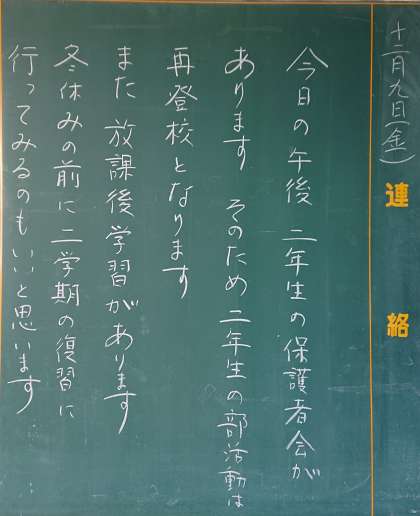 十二月九日(金)
連絡
今日の午後 二年生の保護者会が
あります そのため二年生の部活動は
再登校となります
また 放課後学習があります
冬休みの前に二学期の復習に
行ってみるのもいいと思います